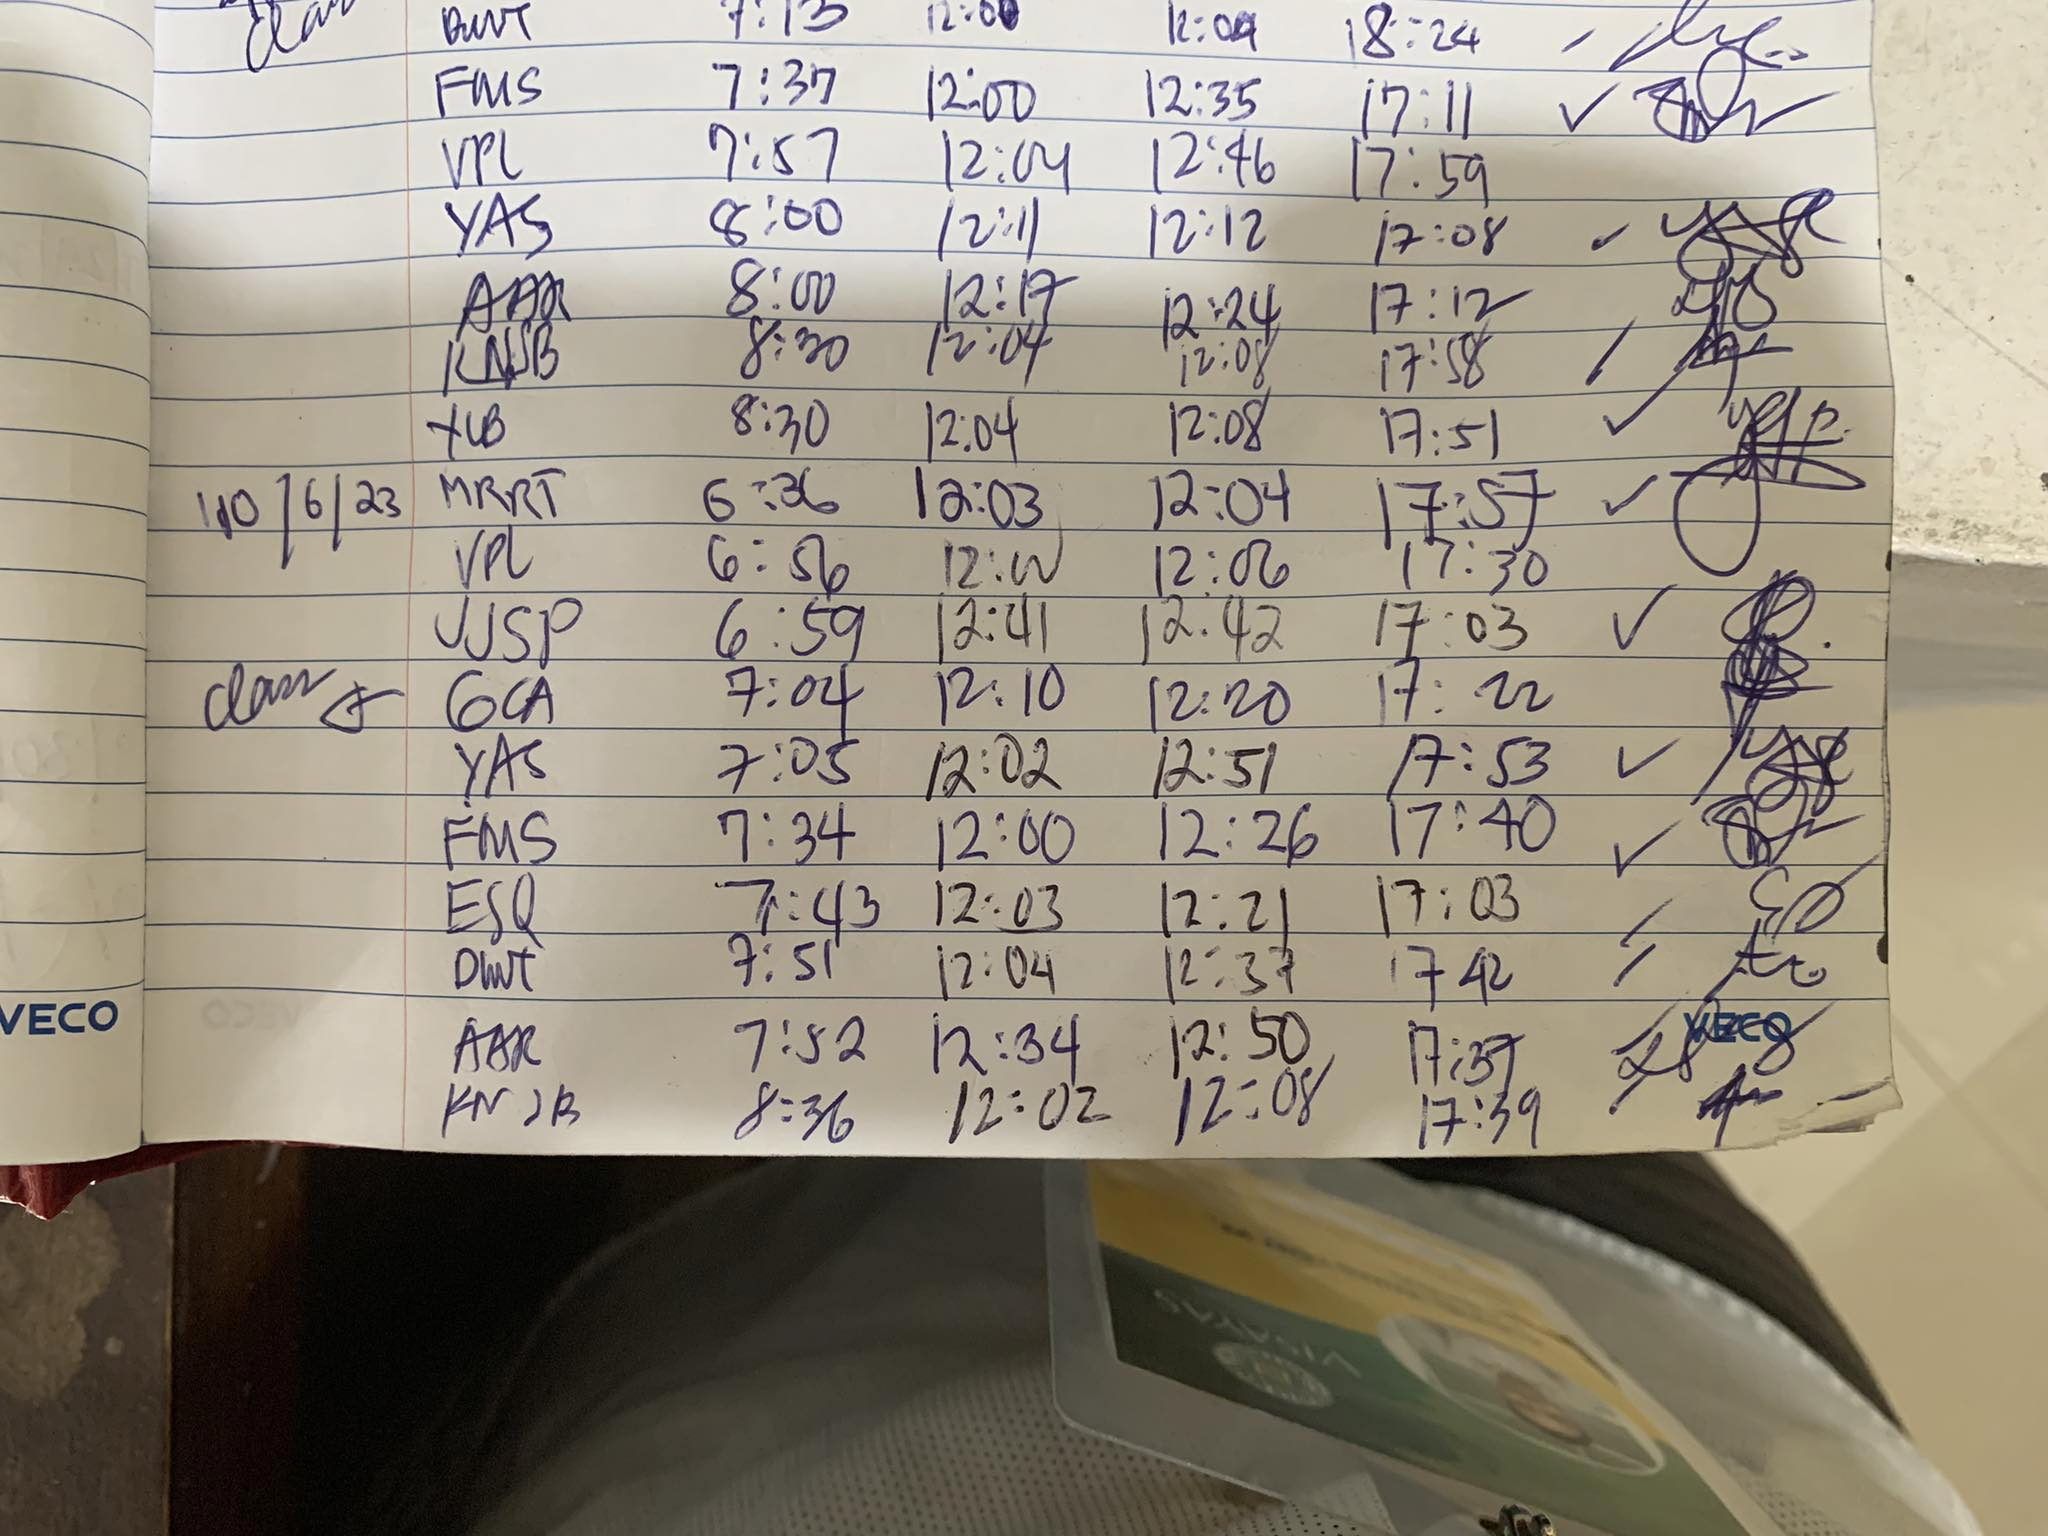 class DWT 7:13 12:00 12:09 18:24
FMS 7:37 12:00 12:35 17:11 ✓
VPL 7:57 12:04 12:46 17:59
YAS 8:00 12:11 12:12 17:08 ✓
AAR 8:00 12:17 12:24 17:12
KNJB 8:30 12:04 12:08 17:58 /
8:30 12:04 12:08 17:51 ✓
10/6/23 MRRT 6:36 12:03 12:04 17:57 ✓
VPL 6:56 12:00 12:06 17:30
JJSP 6:59 12:41 12:42 17:03 ✓
class GCA 7:04 12:10 12:20 17:22
YAS 7:05 12:02 12:51 17:53 ✓
FMS 7:34 12:00 12:26 17:40 ✓
ESQ 7:43 12:03 12:21 17:03 /
DWT 7:51 12:04 12:37 17 42 /
AAR 7:52 12:34 12:50 17:37
KNJB 8:36 12:02 12:08 17:39 /
VECO
VECO
VISAYAS